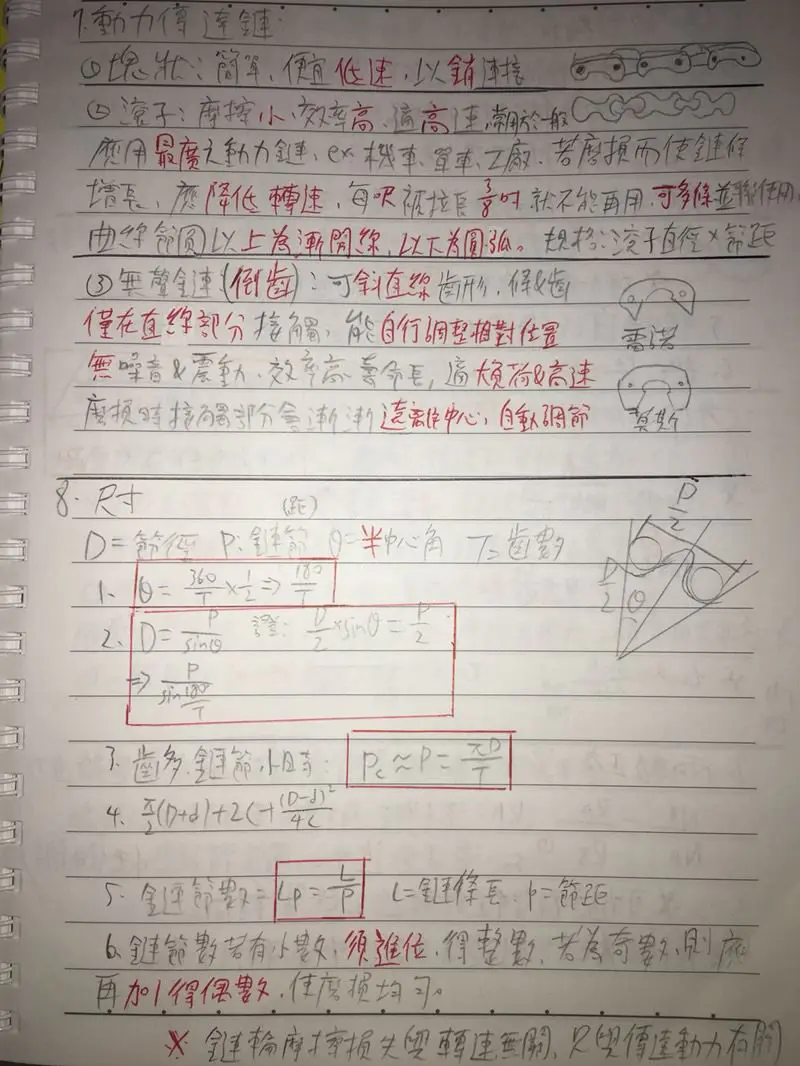 7.動力傳達鏈:
①塊狀:簡單、便宜低速,以銷連接
②滾子:摩擦小、效率高、適高速,常用於一般
應用最廣之動力鏈、ex機車、單車、工廠、若磨損而使鏈條
增長,應降低轉速,每呎被拉長3/8吋就不能再用,可多條並聯使用,
曲線節圓以上為漸開線,以下為圓弧。規格:滾子直徑×節距
③無聲鏈(倒齒):可斜直線齒形,條&齒
僅在直線部分接觸,能自行調整相對位置
雷諾
無噪音&震動、效率高、壽命長,適大負荷&高速
磨損時接觸部分會漸漸遠離中心,自動調節
莫斯
8.尺寸
(距)
D=節徑 P:鏈節 θ=半中心角 T=齒數
P/2
D/2
θ
1. θ=360/T×1/2⇒180/T
2. D=P/sinθ 證:D/2×sinθ=P/2
⇒P/sin180/T
3. 齒多,鏈節小時: Pc≈P=πD/T
4. π/2(D+d)+2C+(D-d)²/4C
5. 鏈節數=Lp=L/P L=鏈條長 p=節距
6.鏈節數若有小數,須進位,得整數,若為奇數,則應
再加1得偶數,使磨損均勻。
※ 鏈輪摩擦損失與轉速無關,只與傳達動力有關